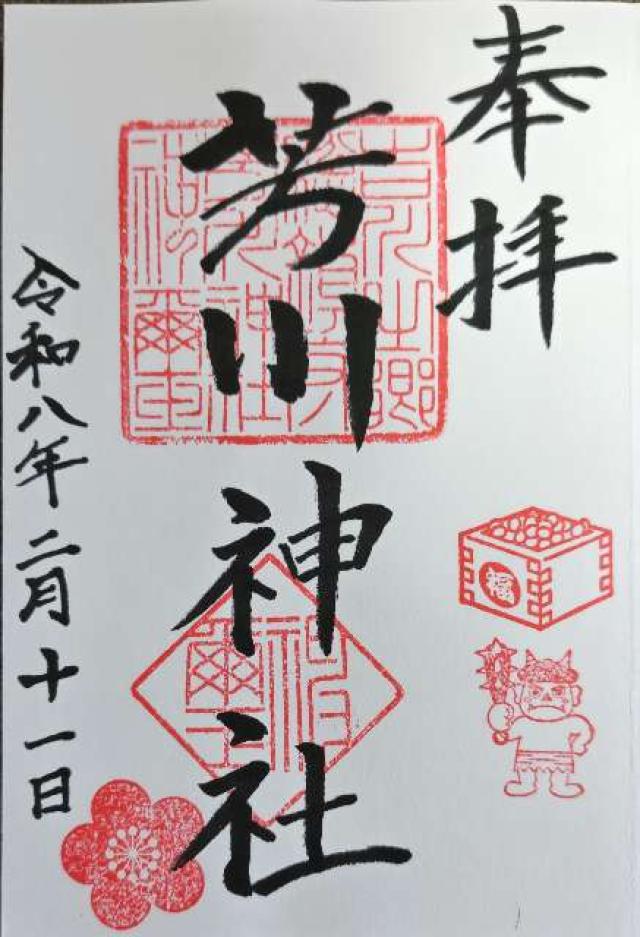 奉拝
芳川神社
令和八年二月十一日
福